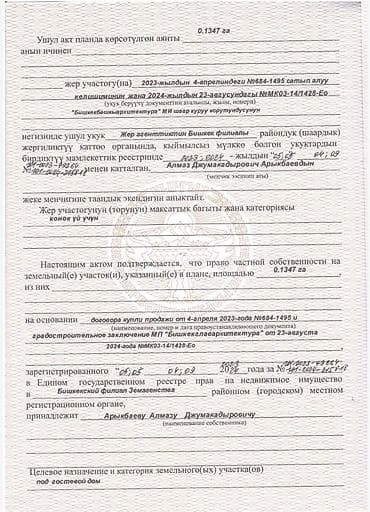 0.1347 га
Ушул акт планда көрсөтүлгөн аянты
анын ичинен
жер участогу(на) 2023-жылдын 4-апрелиндеги №684-1495 сатып алуу
келишиминин жана 2024-жылдын 23-августундагы №МК03-14/1428-Ео
(укук берүүчү документтин аталышы, жылы, номери)
"Бишкекбашкыархитектура" МИ шаар куруу корутундусунун
негизинде ушул укук Жер агенттиктин Бишкек филиалы райондук (шаардык)
жергиликтүү каттоо органында, кыймылсыз мүлккө болгон укуктардын
бирдиктүү мамлекеттик реестринде 2023, 2024 - жылдын "05,05 04,09
№ менен катталган, Алмаз Джумакадырович Арыкбаевдын
(менчик ээсинин аты)
жеке менчигине таандык экендигин аныктайт.
Жер участогунун (торунун) максаттык багыты жана категориясы
конок үй үчүн
Настоящим актом подтверждается, что право частной собственности на
земельный(е) участок(и), указанный(е) в плане, площадью 0.1347 га,
из них
на основании договора купли продажи от 4-апреля 2023-года №684-1495 и
(наименование, номер и дата правоустанавливающего документа)
градостроительное заключение МП "Бишкекглавархитектура" от 23-августа
2024-года №МК03-14/1428-Ео
зарегистрированного "05,05 04,09 2023 2024 года за №
в Едином государственном реестре прав на недвижимое имущество
в Бишкекский филиал Земагенства районном (городском) местном
регистрационном органе,
принадлежит Арыкбаеву Алмазу Джумакадыровичу
(наименование собственника)
Целевое назначение и категория земельного(ых) участка(ов)
под гостевой дом